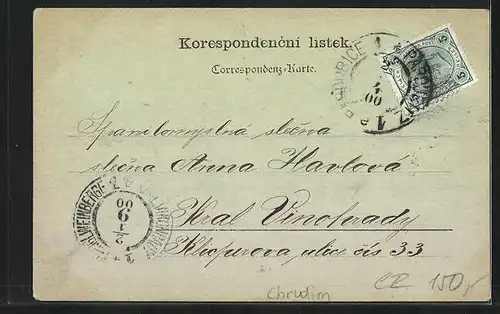 Korespondenční lístek.
Correspondenz-Karte.
PARDUBICE 1
00
5
5
Spanilomyslná slečna
slečna Anna Havlová
Král Vinohrady
Klicperova ulice čís 33
WEINBERGE
9
1/2
00
Chrudim
CR 150,-